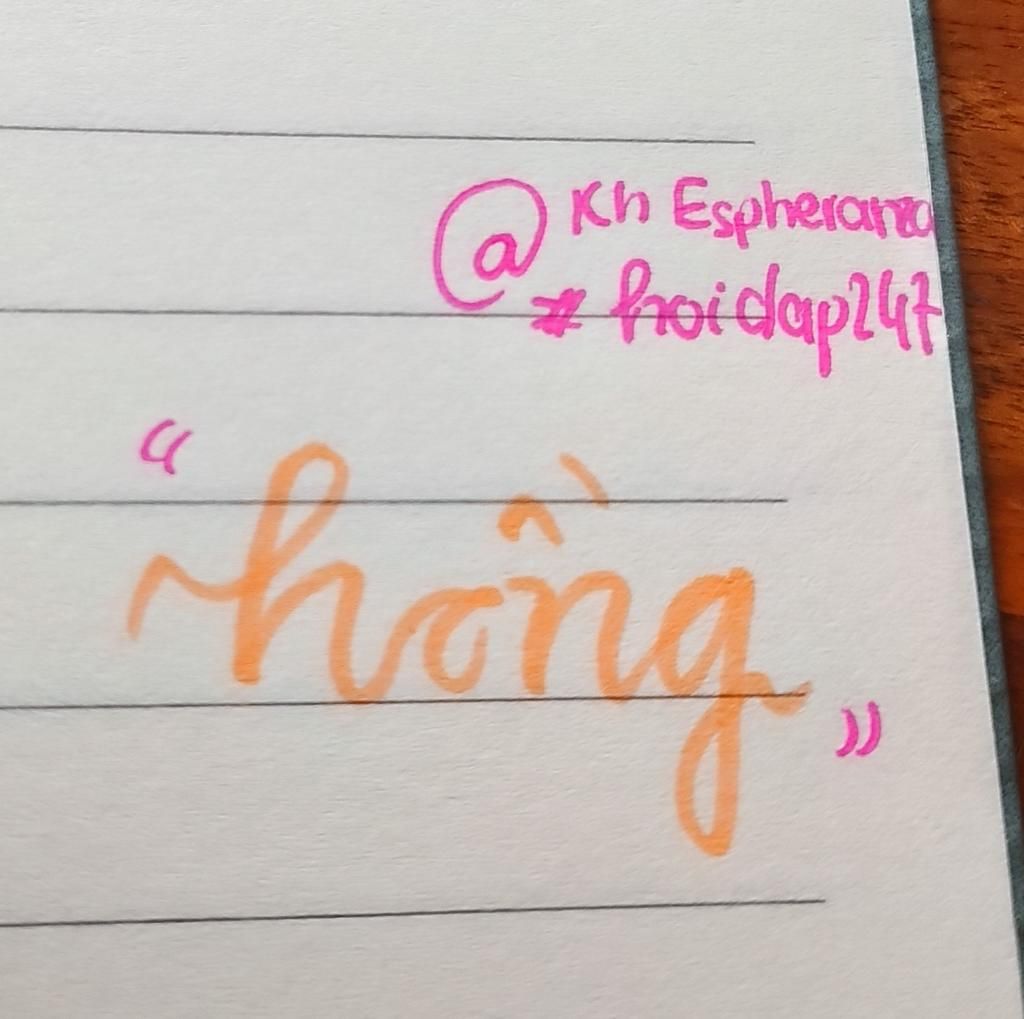 @Kh Espheranza
#hoidap247
“hồng”